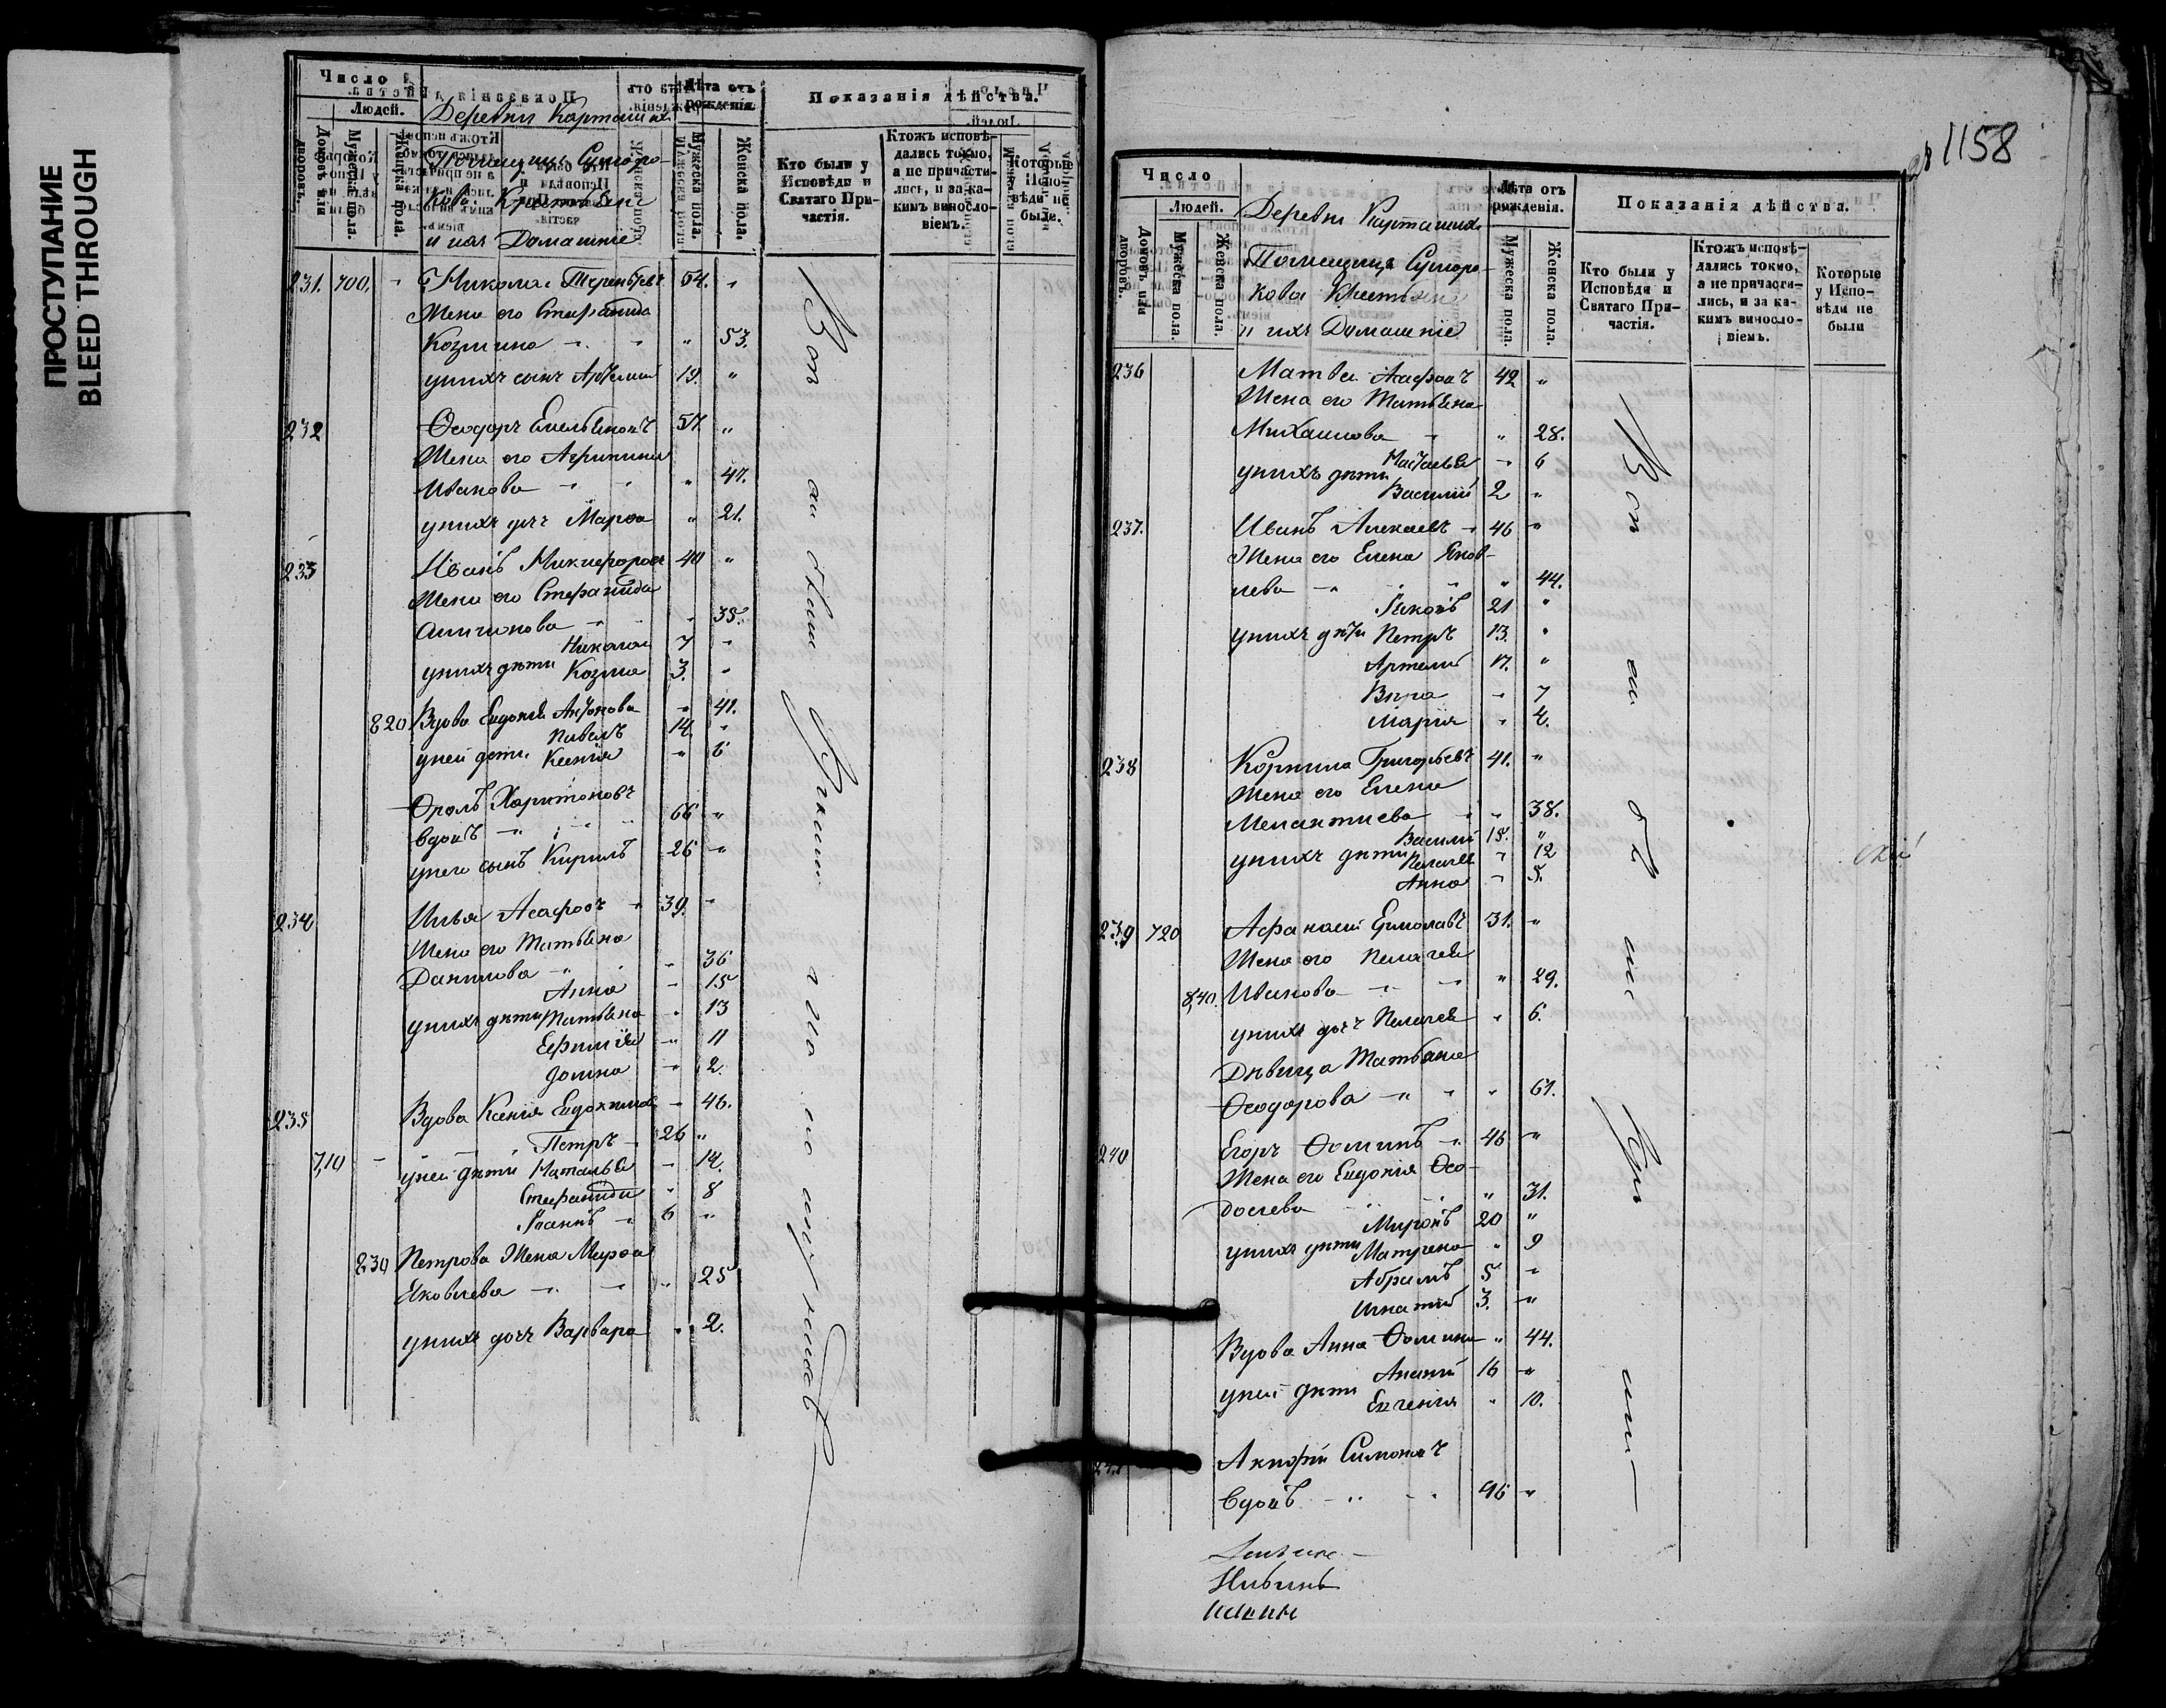 ПРОСТУПАНИЕ
BLEED THROUGH
Число
Людей.
Домовъ или дворовъ.
Мужеска пола.
Женска пола.
Деревни Карташих
Помещицы Сумаро-
кова Крестьяне
и ихъ Домашніе
Лѣта отъ рожденія.
Мужеска пола.
Женска пола.
Показанія дѣйства.
Кто были у Исповѣди и Святаго Причастія.
Ктожъ исповѣдались токмо, а не причастились, и за какимъ винословіемъ.
Которые у Исповѣди не были.
231. 700. Николай Терентьевъ 54. "
Жена его Стефанида
Козмина " 53.
у нихъ сынъ Артемий 19. "
232 Ѳеодоръ Емельяновъ 57. "
Жена его Агрипина
Иванова " 47.
у нихъ дочь Марѳа " 21.
233 Иванъ Никифоровъ 40 "
Жена его Стефанида
Антипова " 35.
Николай 7 "
у нихъ дѣти Козма 3. "
820 Вдова Евдокія Антонова " 41.
Павелъ 14. "
у ней дети Ксенія " 6
Ѳролъ Харитоновъ
вдовъ 66 "
у него сынъ Кирилъ 26 "
234 Илья Асафовъ 39. "
Жена его Татьяна
Данилова " 36
Анна " 15
у нихъ дѣти Татьяна " 13
Ефимія " 11
Домна " 2.
235 Вдова Ксенія Евдокимова " 46.
Петръ 26 "
710 у ней дѣти Наталья " 14.
Стефанида " 8
Іоаннъ 6 "
830 Петрова Жена Марѳа
Яковлева " 25
у нихъ дочь Варвара " 2.
1158
Число
Людей.
Домовъ или дворовъ.
Мужеска пола.
Женска пола.
Деревни Карташих
Помещица Сумаро-
кова Крестьяне
и ихъ Домашніе
Лѣта отъ рожденія.
Мужеска пола.
Женска пола.
Показанія дѣйства.
Кто были у Исповѣди и Святаго Причастія.
Ктожъ исповѣдались токмо, а не причастились, и за какимъ винословіемъ.
Которые у Исповѣди не были
236 Матвей Асафовъ 42 "
Жена его Татьяна
Михаилова " 28.
Настасья " 6
у нихъ дѣти Василій 2 "
237. Иванъ Алексаевъ 46 "
Жена его Елена Яков-
лева " 44.
Іаковъ 21 "
у нихъ дѣти Петръ 13. "
Артемий 17. "
Вѣра " 7
Марія " 4.
238 Корнила Григорьевъ 41. "
Жена его Елена
Мелантиева " 38.
Василій 15. "
у нихъ дѣти Пелагея " 12
Анна " 5.
239 720 Афанасій Ермолаевъ 31. "
Жена его Пелагея
840. Иванова " 29.
у нихъ дочь Пелагея " 6.
Дѣвица Татьяна
Ѳеодорова " 61.
240 Егоръ Ѳоминъ 46 "
Жена его Евдокія Ѳео-
досіева " 31.
Миронъ 20 "
у нихъ дѣти Матрена " 9
Абрамъ 5 "
Игнатій 3. "
Вдова Анна Ѳомина " 44.
Ананій 16 "
у ней дѣти Евгенія " 10.
241 Акинфій Симоновъ
вдовъ 46 "